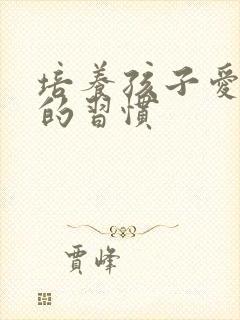 培養孩子愛
的習慣
賈峰